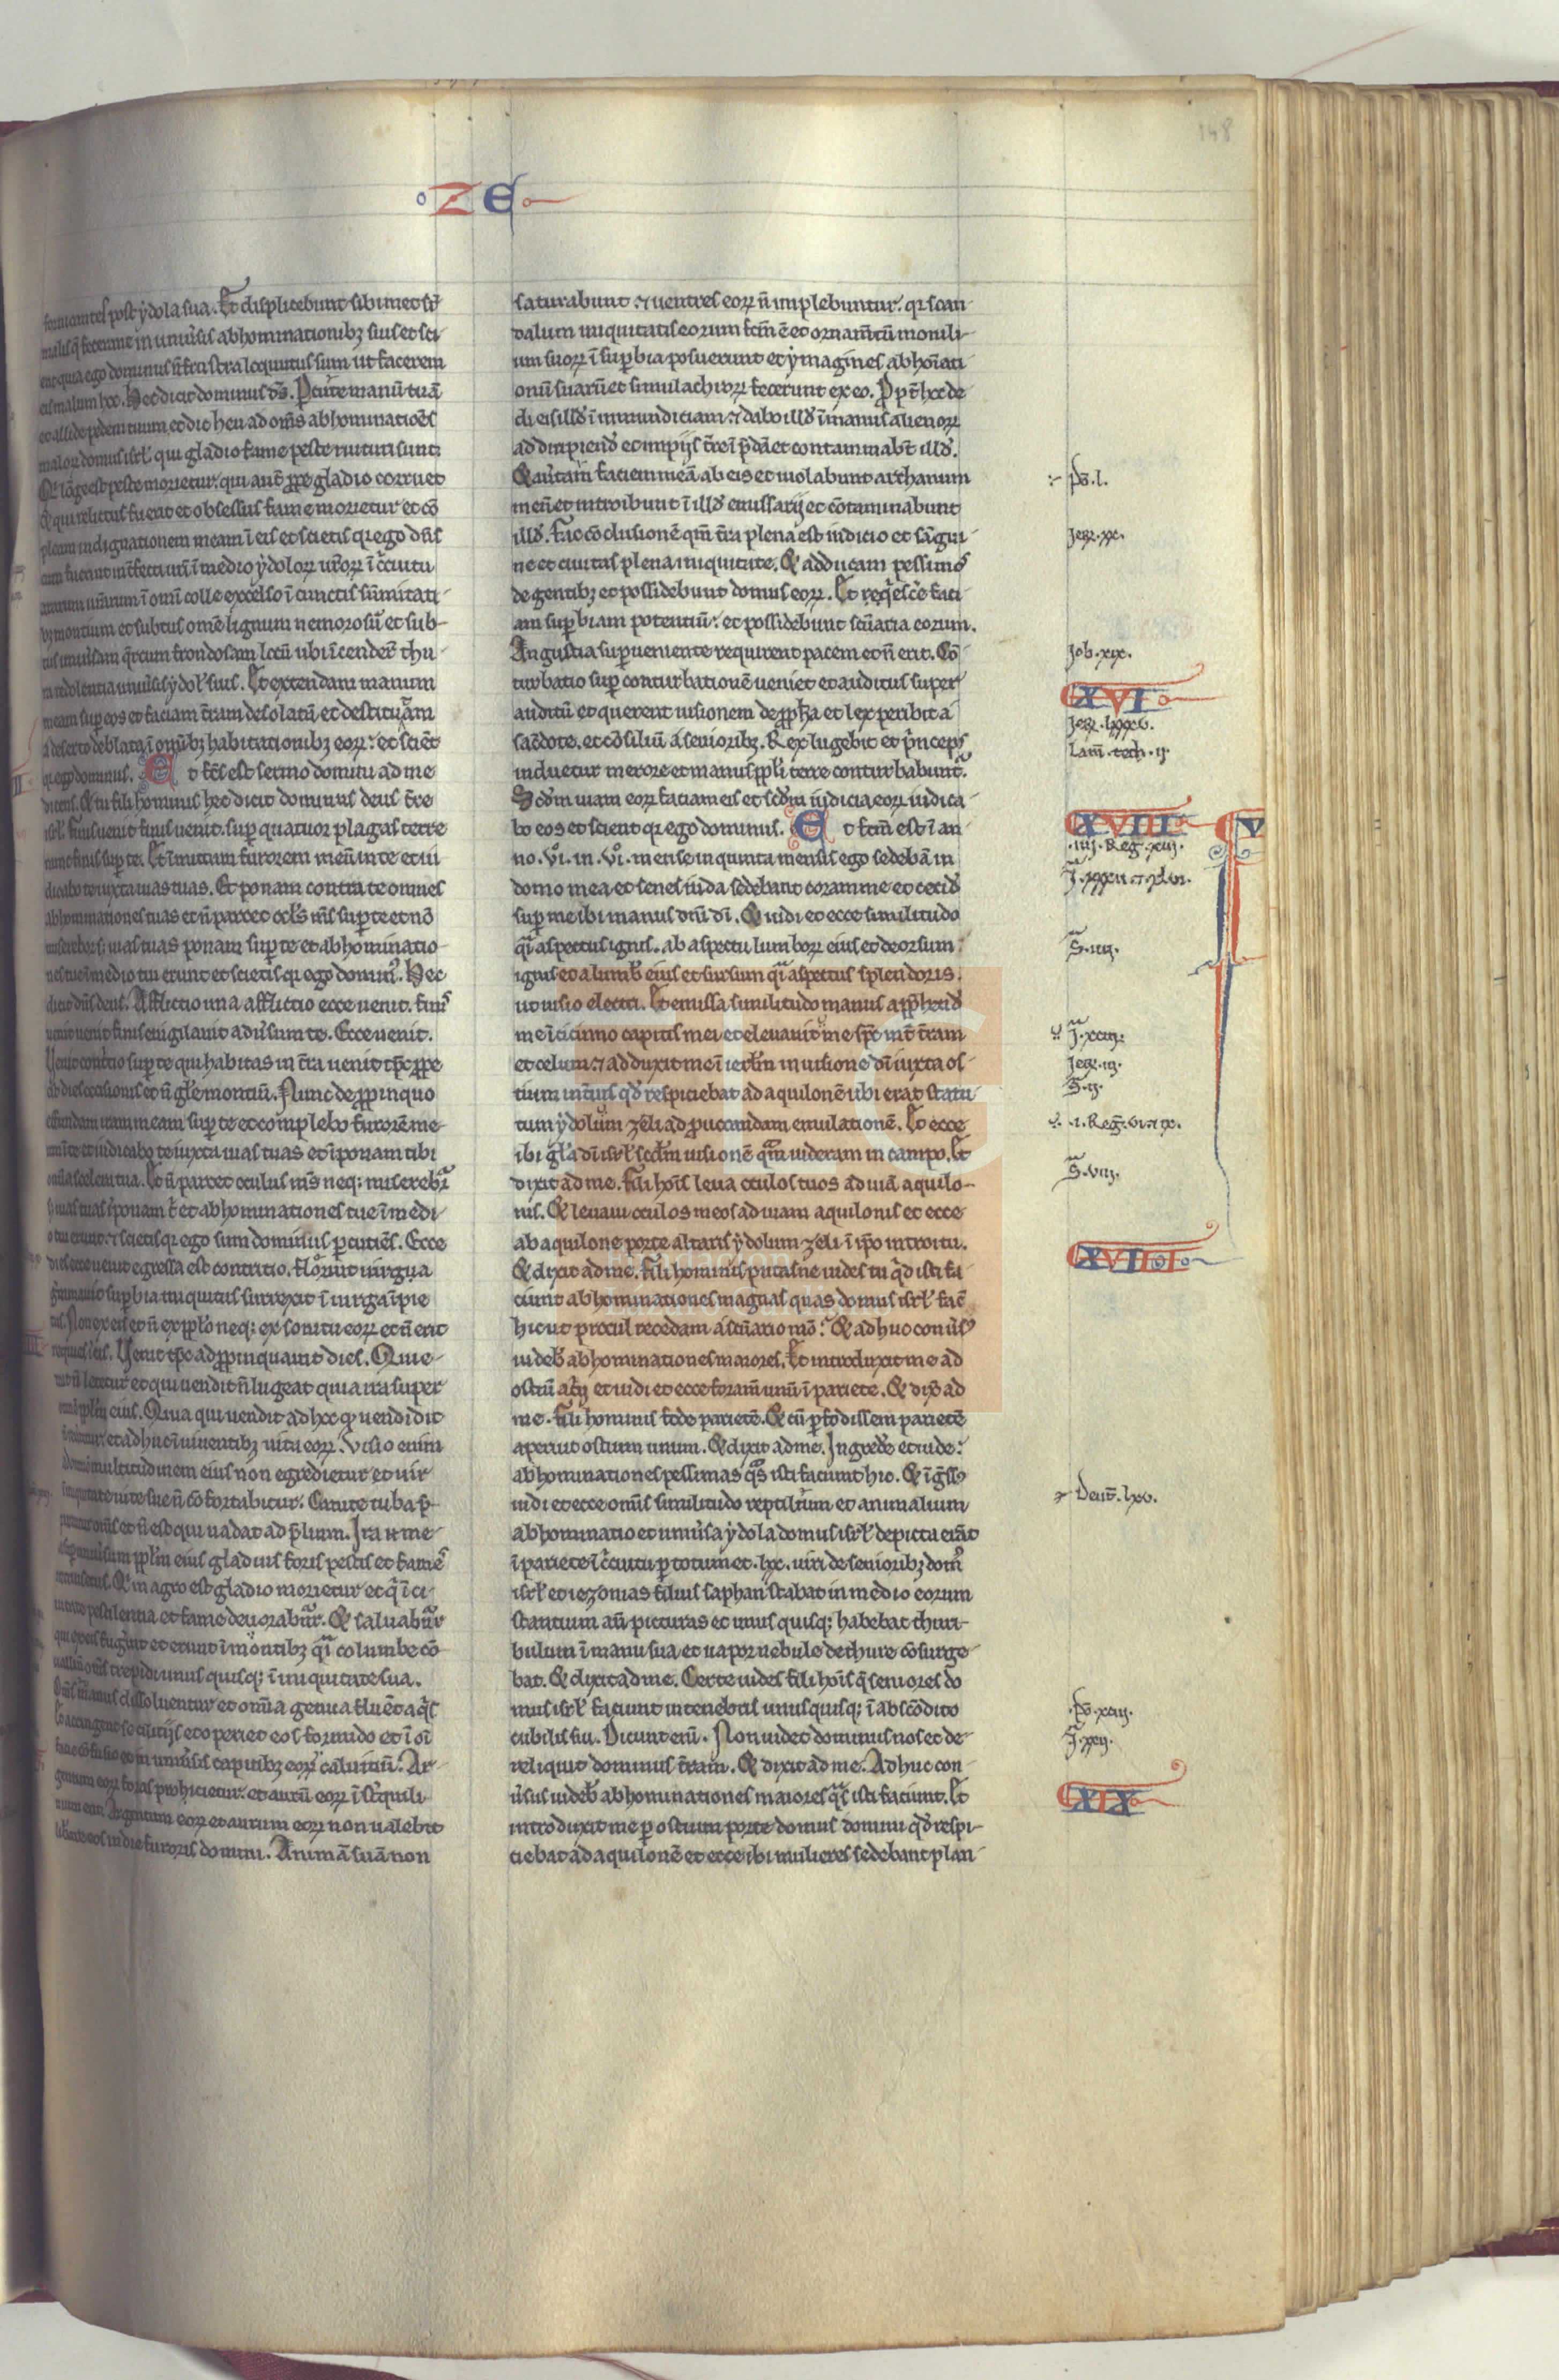 148
ZE
post ydola sua. Et displicebunt sibimet sr̄
in uniu̓sis abhominationibꝫ suis et sci
ent quia ego dominus ñ frustra locutus sum ut facerem
eis malum hoc. Hec dicit dominus dẽs. Percute manũ tuã
et allide pedem tuum et dic heu ad om̃s abhominatiões
malor domus isrl̓ qui gladio fame peste ruituri sunt.
Qui lõge est peste morietur. qui aut̃ prope gladio corruet
& qui relictus fuerit et obsessus fame morietur et cõ
pleam indignationem meam ĩ eis et scietis qꝫ ego dñs
cum fuerint int̃fecti ur̃i ĩ medio ydoloꝝ ur̃oꝝ ĩ c̃cuitu
ararum ur̃arum ĩ om̃i colle excelso ĩ cunctis sũmitati
bꝫ montium et subtus om̃e lignum nemorosũ et sub
tus uniu̓sam q̃rcum frondosam locũ ubi ĩcender̃t thu
ra redolentia uniu̓sis ydol̓ suis. Et extendam manum
meam sup̱ eos et faciam t̃ram desolatã et destitutam
a deserto deblata ĩ om̃ibꝫ habitationibꝫ eoꝝ. et sciẽt
qꝫ ego dominus. Et fc̃s est sermo domini ad me
dicens. & tu fili hominis hec dicit dominus deus t̃re
isrl̓ finis uenit finis uenit. sup̱ quatuor plagas terre
nunc finis sup̱ te. Et ĩmittam furorem meũ in te et iu
dicabo te iuxta uias tuas. Et ponam contra te omnes
abhominationes tuas et ñ parcet ocl̓s m̃s sup̱ te et nõ
miserebor. s; uias tuas ponam sup̱ te et abhominatio
nes tue ĩ medio tui erunt et scietis qꝫ ego domin̓. Hec
dicit dñs deus. Afflictio una afflictio ecce uenit. finis
uenit uenit finis euigilauit adu̓sum te. Ecce uenit.
Uenit contritio sup̱ te qui habitas in t̃ra uenit tp̃c prope
est dies occisionis et ñ gl̓e montiũ. Nunc de propinquo
effundam iram meam sup̱ te et complebo furorẽ me
um ĩ te et iudicabo te iuxta uias tuas et ĩponam tibi
om̃ia scelera tua. Et ñ parcet oculus m̃s neqꝫ miserebr̃
s; uias tuas ĩponam t̃ et abhominationes tue ĩ medi
o tui erunt. et scietis qꝫ ego sum dominus p̱cutiẽs. Ecce
dies ecce uenit egressa est contritio. floruit uirgua
germinauit sup̱bia iniquitas surrexit ĩ uirga ĩpie
tatis. Non ex eis et ñ ex pp̃lo neqꝫ ex sonitu eoꝝ et ñ erit
requies ĩ eis. Uenit tp̃c adpropinquauit dies. Qui e
mit ñ letetur et qui uendit ñ lugeat quia ira super
om̃em pp̃lm eius. Quia qui uendit ad hoc qꝫ uendidit
ñ reuertetur et adhuc ĩ uiuentibꝫ uita eoꝝ. Visio enim
ad om̃em multitudinem eius non egredietur et uir
ĩ iniquitate uite sue ñ cõfortabitur. Canite tuba p̃
parentur om̃s et ñ est qui uadat ad p̃lium. Ira n̄ me
a sup̱ uniu̓sum pp̃lm eius gladius foris pestis et fames
intrinsecus. Qi in agro est gladio morietur et q̃ ĩ ci
uitate pestilentia et fame deuorabunt̃. & saluabunt̃
qui ex eis fugerint et erunt ĩ montibꝫ q̃ĩ columbe cõ
uallium om̃s trepidi unus quisqꝫ ĩ iniquitate sua.
Om̃s manus dissoluentur et om̃ia genua fluẽt aq̃s
Et accingent se ciliciis et operiet eos formido et ĩ oĩ
facie cõfusio et in uniu̓sis capitibꝫ eoꝝ caluitiũ. Ar
gentum eoꝝ foras prohicietur. et aurũ eoꝝ ĩ st̃quili
nium erit. Argentum eoꝝ et aurum eoꝝ non ualebit
lib̃are eos in die furoris domini. Animã suã non
saturabunt. et uentres eoꝝ ñ implebuntur. qꝫ scan
dalum iniquitatis eorum fcm̃ ẽ et ornam̃tũ monili
um suoꝝ ĩ sup̱bia posuerunt et ymagines abhoĩati
onũ suarũ et simulachroꝝ fecerunt ex eo. Ppt̃ hoc de
di eis illð ĩ inmundiciam. et dabo illð ĩ manus alienoꝝ
ad diripiendð et impiis t̃re ĩ p̃dã et contaminabt̃ illð.
& au̓tam faciem meã ab eis et uiolabunt archanum
meũ et introibunt ĩ illð emissarij et cõtaminabunt
illð. Fac cõclusionẽ qm̃ t̃ra plena est iudicio et sãgui
ne et ciuitas plena iniquitate. & adducam pessimos
de gentibꝫ et possidebunt domus eoꝝ. Et req̃escẽ faci
am sup̱biam potentiũ. et possidebunt scũaria eorum.
Angustia sup̱ueniente requirent pacem et ñ erit. Cõ
turbatio sup̱ conturbationẽ ueniet et auditus super
auditũ et querent uisionem de propha et lex peribit a
sac̃dote. et cõsiliũ a senioribꝫ. Rex lugebit et p̃nceps
induetur merore et manus pp̃li terre conturbabunt̃.
Scðm uiam eoꝝ faciam eis et scðm iudicia eoꝝ iudica
bo eos et scient qꝫ ego dominus. Et fcm̃ est ĩ an
no. vi̊. in. vi̊. mense in quinta mensis ego sedebã in
domo mea et senes iuda sedebant coram me et cecið
sup̱ me ibi manus dñi dĩ. & uidi et ecce similitudo
q̃ĩ aspectus ignis. ab aspectu lumboꝝ eius et deorsum
ignis et a lumb̃ eius et sursum q̃ĩ aspectus splendoris.
ut uisio electri. Et emissa similitudo manus app̃henð
me ĩ cicinno capitis mei et eleuauit me sp̃c int̃ t̃ram
et celum. et adduxit me ĩ ierl̓m in uisione dĩ iuxta os
tium int̃ius qð respiciebat ad aquilonẽ ubi erat statu
tum ydolum zeli ad prouocandam emulationẽ. Et ecce
ibi gl̓a dĩ isrl̓ scðm uisionẽ quã uideram in campo. Et
dixit ad me. Fili hoĩs leua oculos tuos ad uiã aquilo
nis. & leuaui oculos meos ad uiam aquilonis et ecce
ab aquilone porte altaris ydolum zeli ĩ ip̃o introitu.
& dixit ad me. Fili hominis putasne uides tu q̃d isti fa
ciunt abhominationes magnas quas domus isrl̓ fac̃
hic ut procul recedam a scũario m̊o. & adhuc conu̓s̓
uideb̓ abhominationes maiores. Et introduxit me ad
ostiũ at̃ij et uidi et ecce foram̃ unũ ĩ pariete. & dix̃ ad
me. Fili hominis fode parietẽ. & cũ p̱fodissem parietẽ
aperuit ostium unum. & dixit ad me. Ingredẽ et uide
abhominationes pessimas q̃s isti faciunt hic. & ĩgr̃ss̓
uidi et ecce omĩs similitudo reptilium et animalium
abhominatio et uniu̓sa ydola domus isrl̓ depicta erãt
ĩ pariete ĩ c̃cuitu p̱ totum et .lxx. uiri de senioribꝫ dom̓
isrl̓ et iezonias filius saphan stabat in medio eorum
stantium añ picturas et unus quisqꝫ habebat thuri
bulum ĩ manu sua et uapor nebule de thure cõsurge
bat. & dixit ad me. Certe uides fili hoĩs q̃ seniores do
mus isrl̓ faciunt in tenebris unusquisqꝫ ĩ abscõdito
cubilis sui. Dicunt enĩ. Non uidet dominus nos et de
reliquit dominus t̃ram. & dixit ad me. Adhuc con
u̓sus uideb̓ abhominationes maiores q̃s isti faciunt. Et
introduxit me p̱ ostium porte domus domini qð respi
ciebat ad aquilonẽ et ecce ibi mulieres sedebant plan
p̃s.l.
Jere.xx.
Job.xix.
XVI
Jere.lxxxv.
Lam̃.tech.ij.
XVII
V
.iiij.Reg.xxij.
J.xxxii.et.xlvi.
S.iiij.
J.xciij.
Jere.iij.
S.ij.
.i.Reg.vi.et.x.
S.viij.
XVIII
Deut̃.lxv.
p̃s.xciij.
J.xxij.
XIX